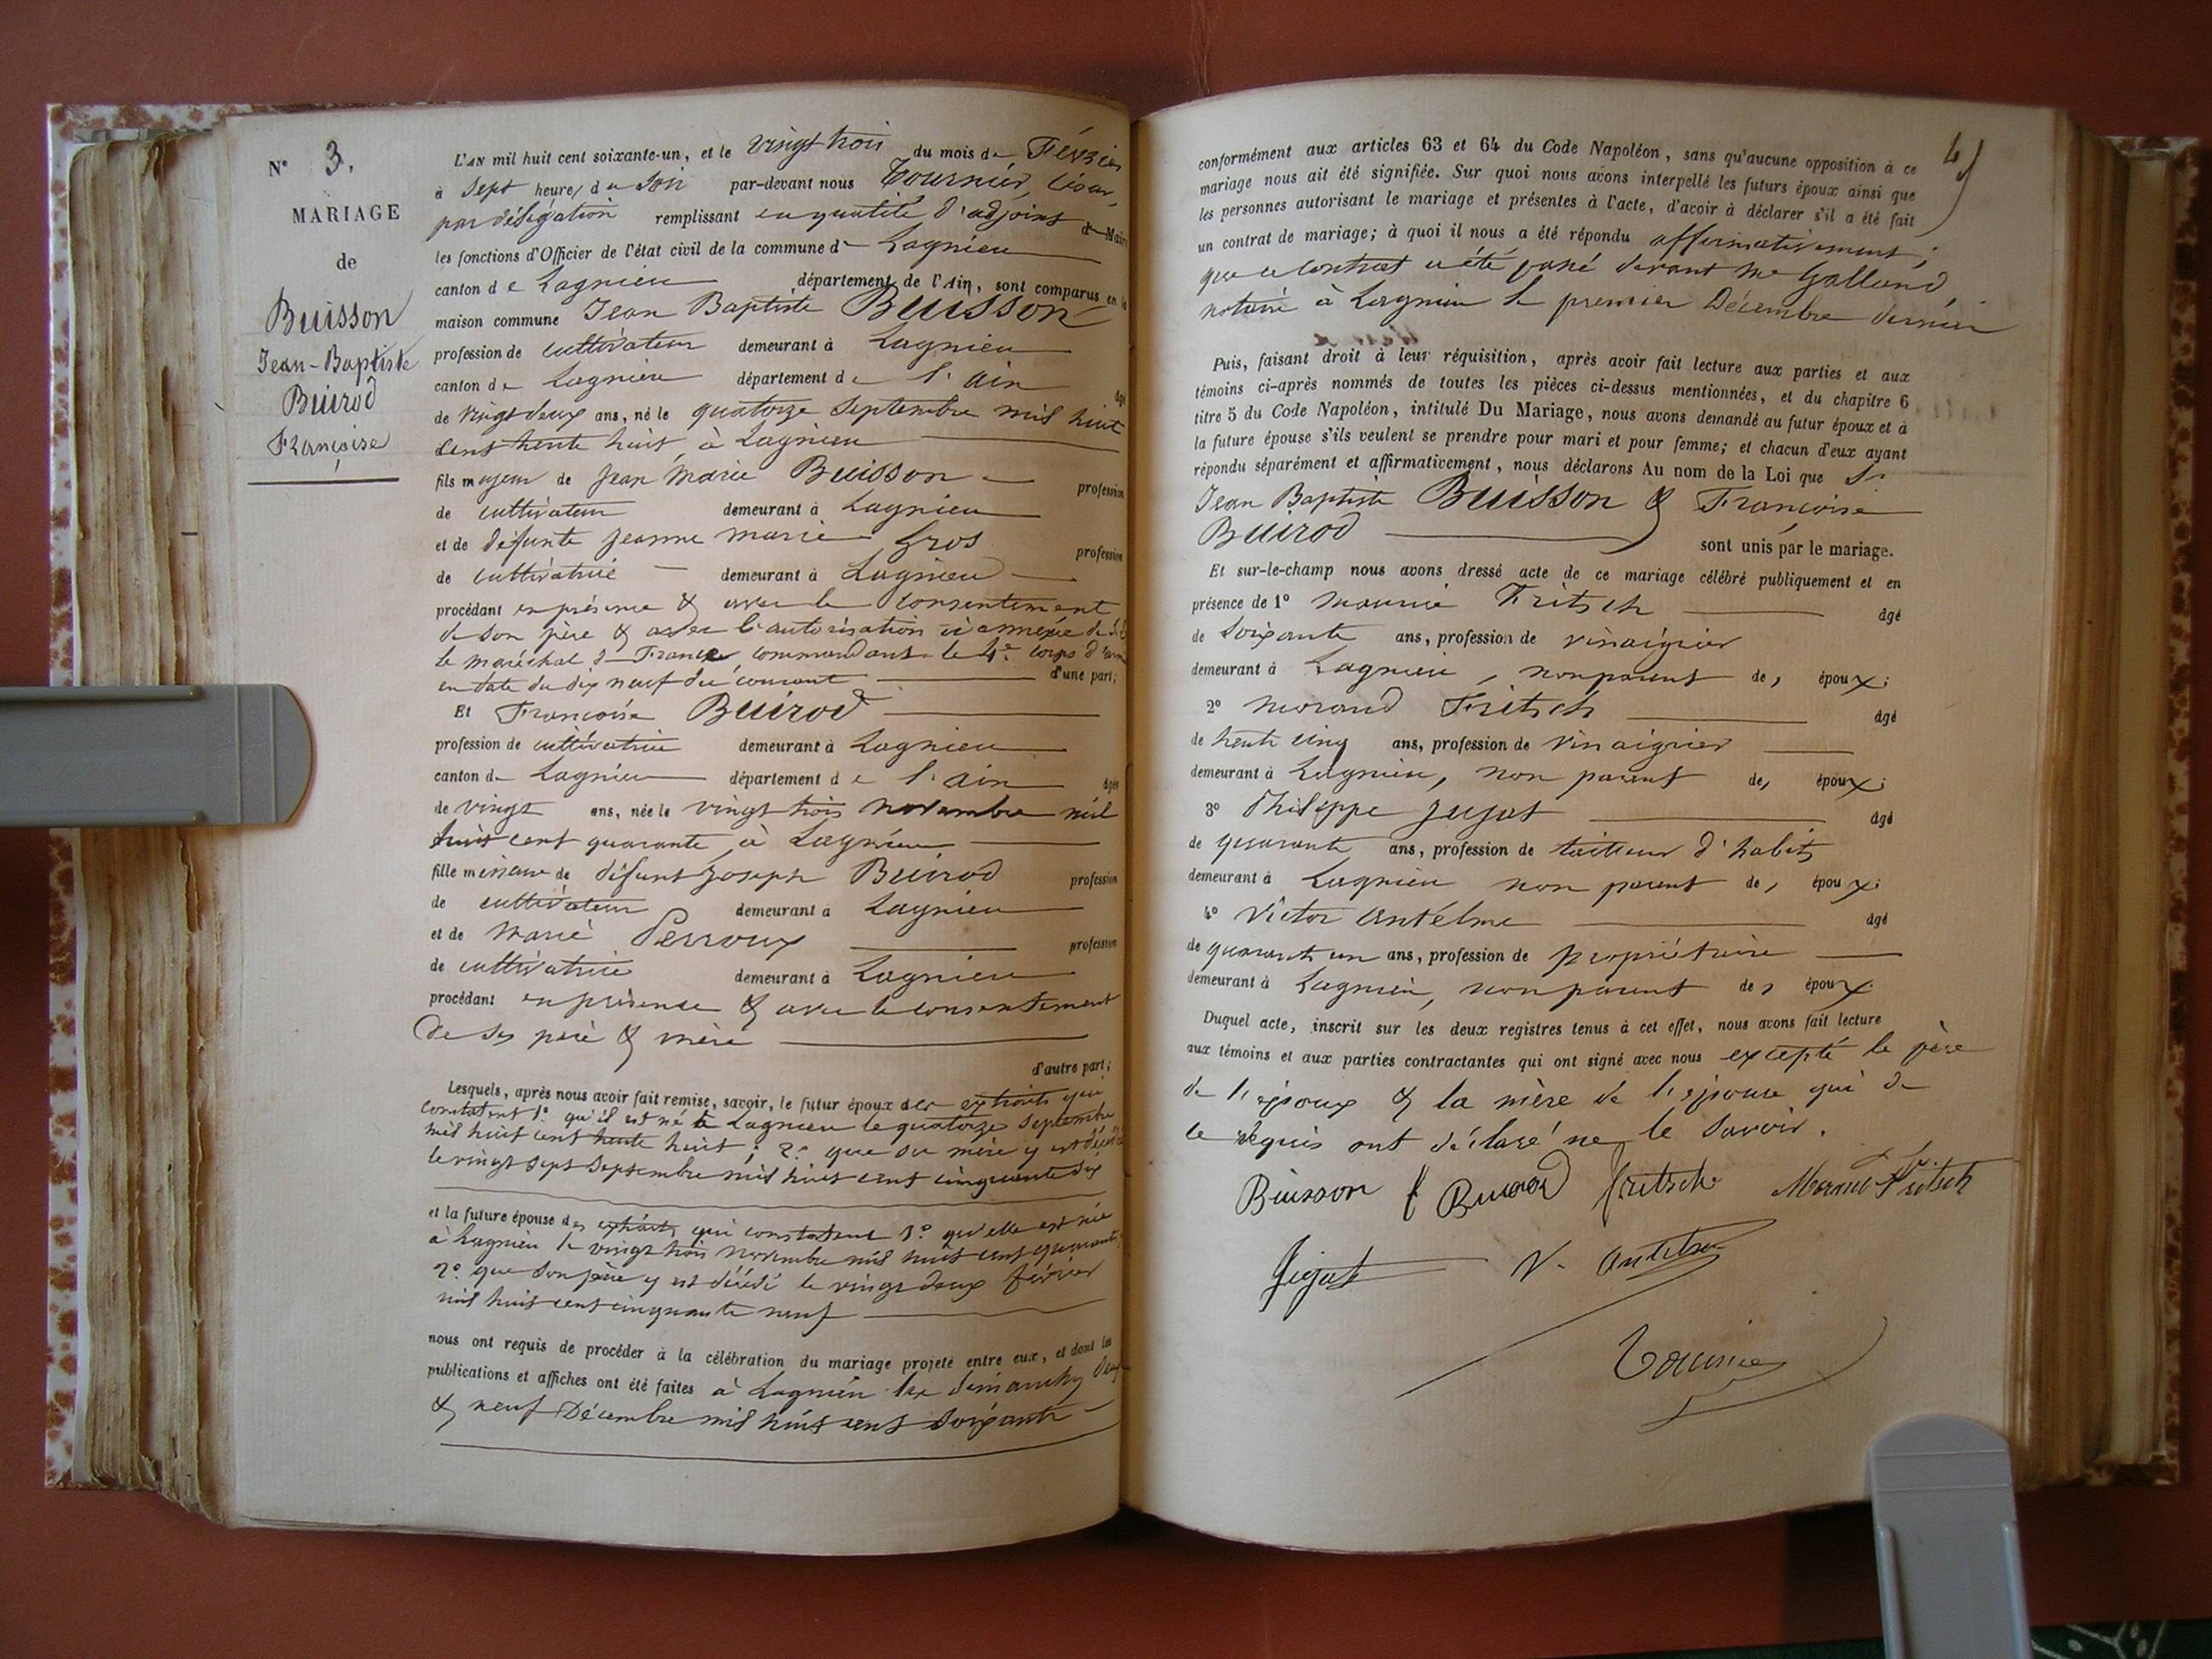 N° 3.
MARIAGE
de
Buisson
Jean-Baptiste
Buirod
Françoise
L'AN mil huit cent soixante-un, et le vingt trois du mois de Février
à sept heures du soir par-devant nous Tournier, César,
par délégation remplissant en qualité d'adjoint de Maire
les fonctions d'Officier de l'état civil de la commune de Lagnieu
canton de Lagnieu département de l'Ain, sont comparus en la
maison commune Jean Baptiste Buisson
profession de cultivateur demeurant à Lagnieu
canton de Lagnieu département de l'ain âgé
de vingt deux ans, né le quatorze Septembre mil huit
cent trente huit, à Lagnieu
fils majeur de Jean Marie Buisson profession
de cultivateur demeurant à Lagnieu
et de défunte Jeanne Marie Gros profession
de cultivatrice demeurant à Lagnieu
procédant en présence & avec le consentement
de son père & avec l'autorisation ci annexée de
le maréchal de France commandant le 4e corps d'armée
en date du dix neuf du courant d'une part;
Et Françoise Buirod
profession de cultivatrice demeurant à Lagnieu
canton de Lagnieu département de l'ain âgée
de vingt ans, née le vingt trois novembre mil
huit cent quarante, à Lagnieu
fille mineure de défunt Joseph Buirod profession
de cultivateur demeurant à Lagnieu
et de Marie Perroux profession
de cultivatrice demeurant à Lagnieu
procédant en présence & avec le consentement
de ses père & mère
d'autre part;
Lesquels, après nous avoir fait remise, savoir, le futur époux des extraits qui
constatent 1° qu'il est né à Lagnieu le quatorze Septembre
mil huit cent trente huit; 2° que sa mère y est décédée
le vingt sept Septembre mil huit cent cinquante six
et la future épouse des extraits qui constatent 1° qu'elle est née
à Lagnieu le vingt trois novembre mil huit cent quarante;
2° que son père y est décédé le vingt deux février
mil huit cent cinquante neuf
nous ont requis de procéder à la célébration du mariage projeté entre eux, et dont les
publications et affiches ont été faites à Lagnieu les dimanches deux
& neuf Décembre mil huit cent soixante
4
conformément aux articles 63 et 64 du Code Napoléon, sans qu'aucune opposition à ce
mariage nous ait été signifiée. Sur quoi nous avons interpellé les futurs époux ainsi que
les personnes autorisant le mariage et présentes à l'acte, d'avoir à déclarer s'il a été fait
un contrat de mariage; à quoi il nous a été répondu affirmativement;
que ce contrat a été passé devant Me Galland,
notaire à Lagnieu le premier Décembre dernier
Puis, faisant droit à leur réquisition, après avoir fait lecture aux parties et aux
témoins ci-après nommés de toutes les pièces ci-dessus mentionnées, et du chapitre 6
titre 5 du Code Napoléon, intitulé Du Mariage, nous avons demandé au futur époux et à
la future épouse s'ils veulent se prendre pour mari et pour femme; et chacun d'eux ayant
répondu séparément et affirmativement, nous déclarons Au nom de la Loi que
Jean Baptiste Buisson & Françoise
Buirod sont unis par le mariage.
Et sur-le-champ nous avons dressé acte de ce mariage célébré publiquement et en
présence de 1° Fritsch âgé
de soixante ans, profession de vinaigrier
demeurant à Lagnieu, non parent des époux;
2° Morand Fritsch âgé
de trente cinq ans, profession de vinaigrier
demeurant à Lagnieu, non parent des époux;
3° Philippe Jujat âgé
de quarante ans, profession de tailleur d'habits
demeurant à Lagnieu non parent des époux;
4° Victor Antelme âgé
de quarante un ans, profession de propriétaire
demeurant à Lagnieu, non parent des époux
Duquel acte, inscrit sur les deux registres tenus à cet effet, nous avons fait lecture
aux témoins et aux parties contractantes qui ont signé avec nous excepté le père
de l'époux & la mère de l'épouse qui de
ce requis ont déclaré ne le savoir.
Buisson f Buirod fritsch Morand Fritsch
Jujat V. Antelme
Tournier